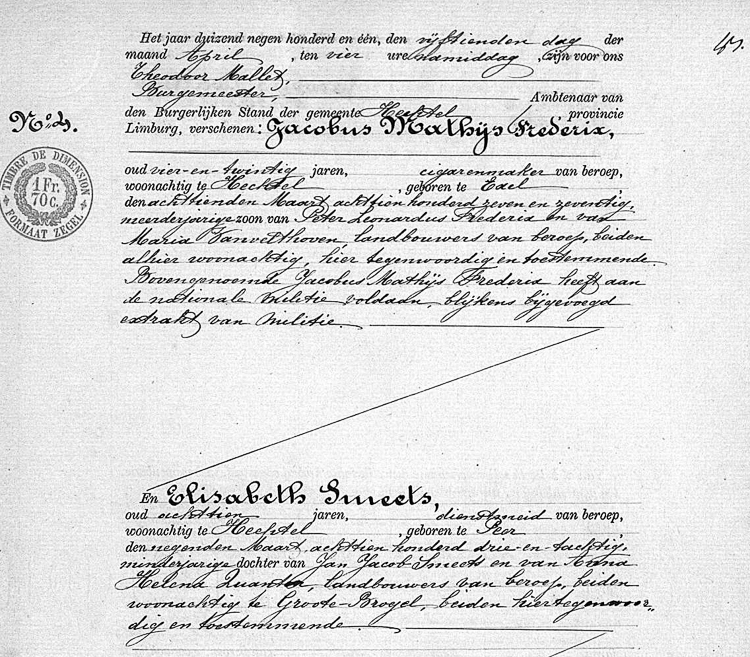 Het jaar duizend negen honderd en één, den vijftienden dag der
maand April, ten vier ure namiddag, zijn voor ons
Theodoor Mallet,
Burgemeester, Ambtenaar van
den Burgerlijken Stand der gemeente Hechtel provincie
Limburg, verschenen: Jacobus Mathijs Frederix,
No 4.
TIMBRE DE DIMENSION
1 Fr.
70 C.
FORMAAT ZEGEL
oud vier-en-twintig jaren, cigarenmaker van beroep,
woonachtig te Hechtel, geboren te Exel,
den achttienden Maart achttien honderd zeven en zeventig,
meerderjarige zoon van Peter Leonardus Frederix en van
Maria Vanvelthoven, landbouwers van beroep, beiden
alhier woonachtig, hier tegenwoordig en toestemmende.
Bovengenoemde Jacobus Mathijs Frederix heeft aan
de nationale militie voldaan, blijkens bijgevoegd
extrakt van militie.
En Elisabeth Smeets,
oud achttien jaren, dienstmeid van beroep,
woonachtig te Hechtel, geboren te Peer
den negenden Maart, achttien honderd drie-en-tachtig,
minderjarige dochter van Jan Jacob Smeets en van Anna
Helena Quanten, landbouwers van beroep, beiden
woonachtig te Groote-Brogel, beiden hiertegenwoor-
dig en toestemmende.